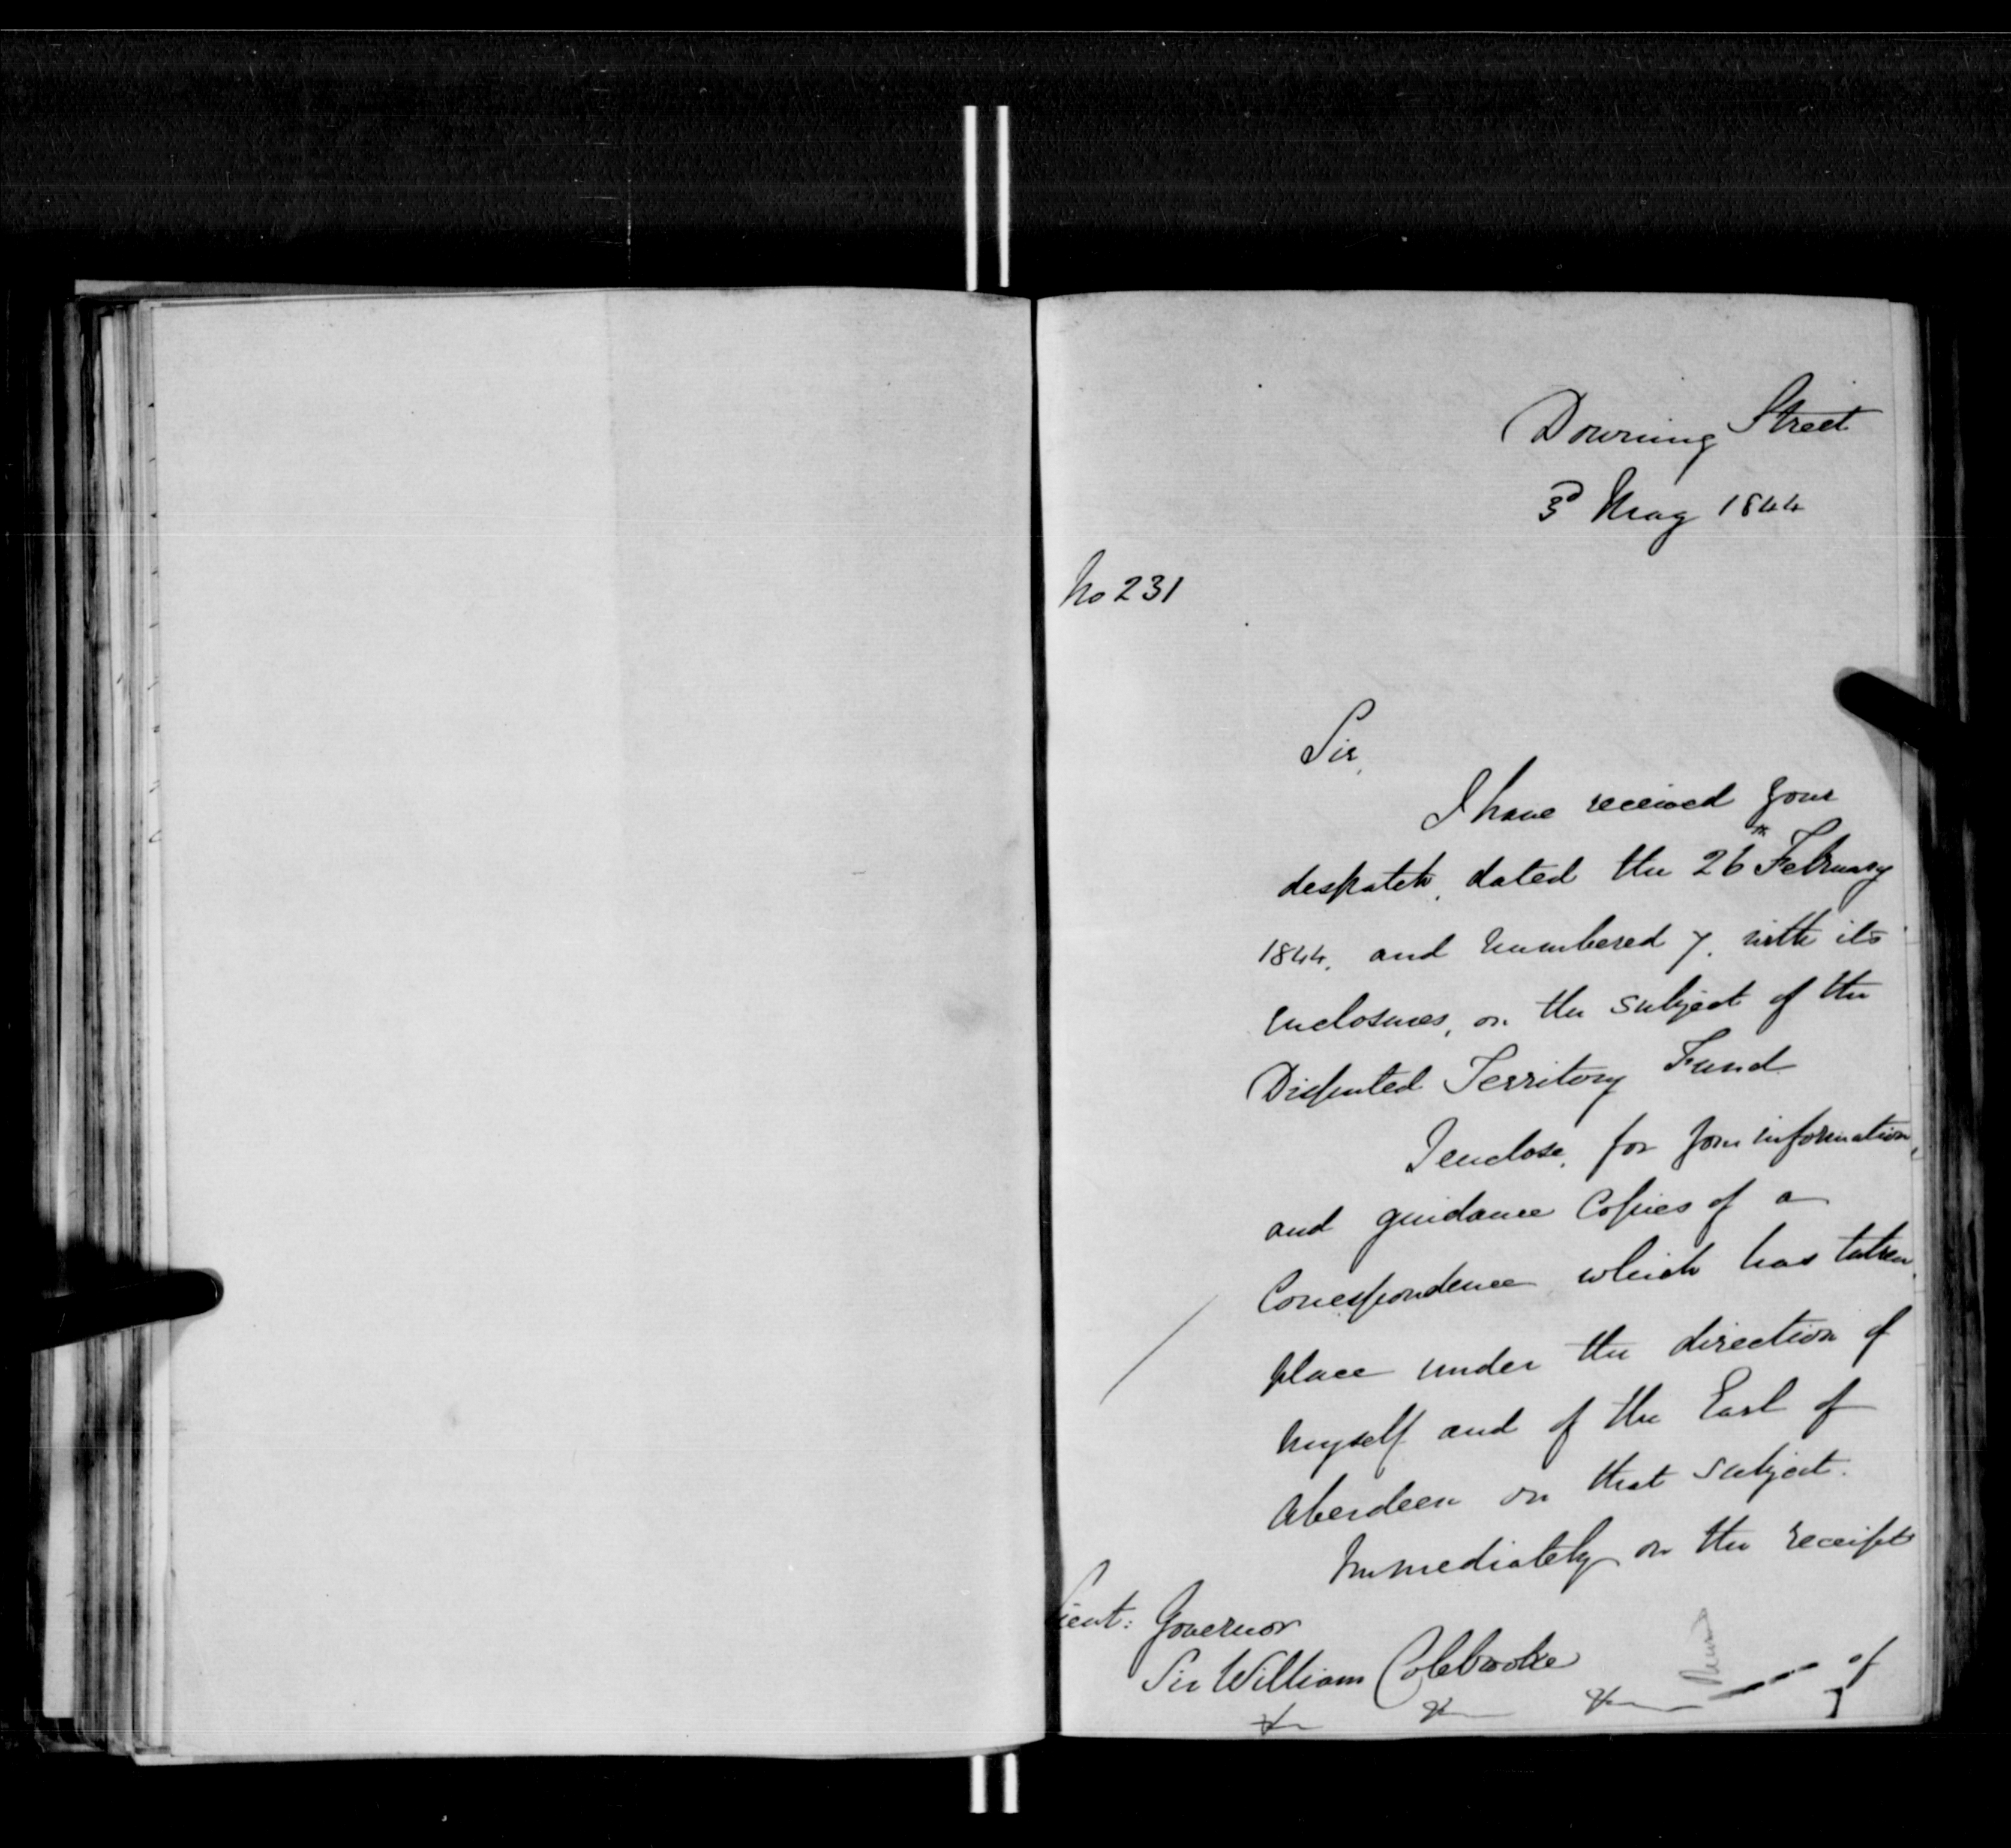 Downing Street
3d May 1844
No 231
Sir,
I have received your
despatch, dated the 26th February
1844, and numbered 7. with its
enclosures, on the subject of the
Disputed Territory Fund
I enclose, for your information,
and guidance Copies of a
Correspondence which has taken
place under the direction of
myself and of the Earl of
Aberdeen on that subject.
Immediately on the receipt
Lieut: Governor
Sir William Colebrooke
&c &c &c of